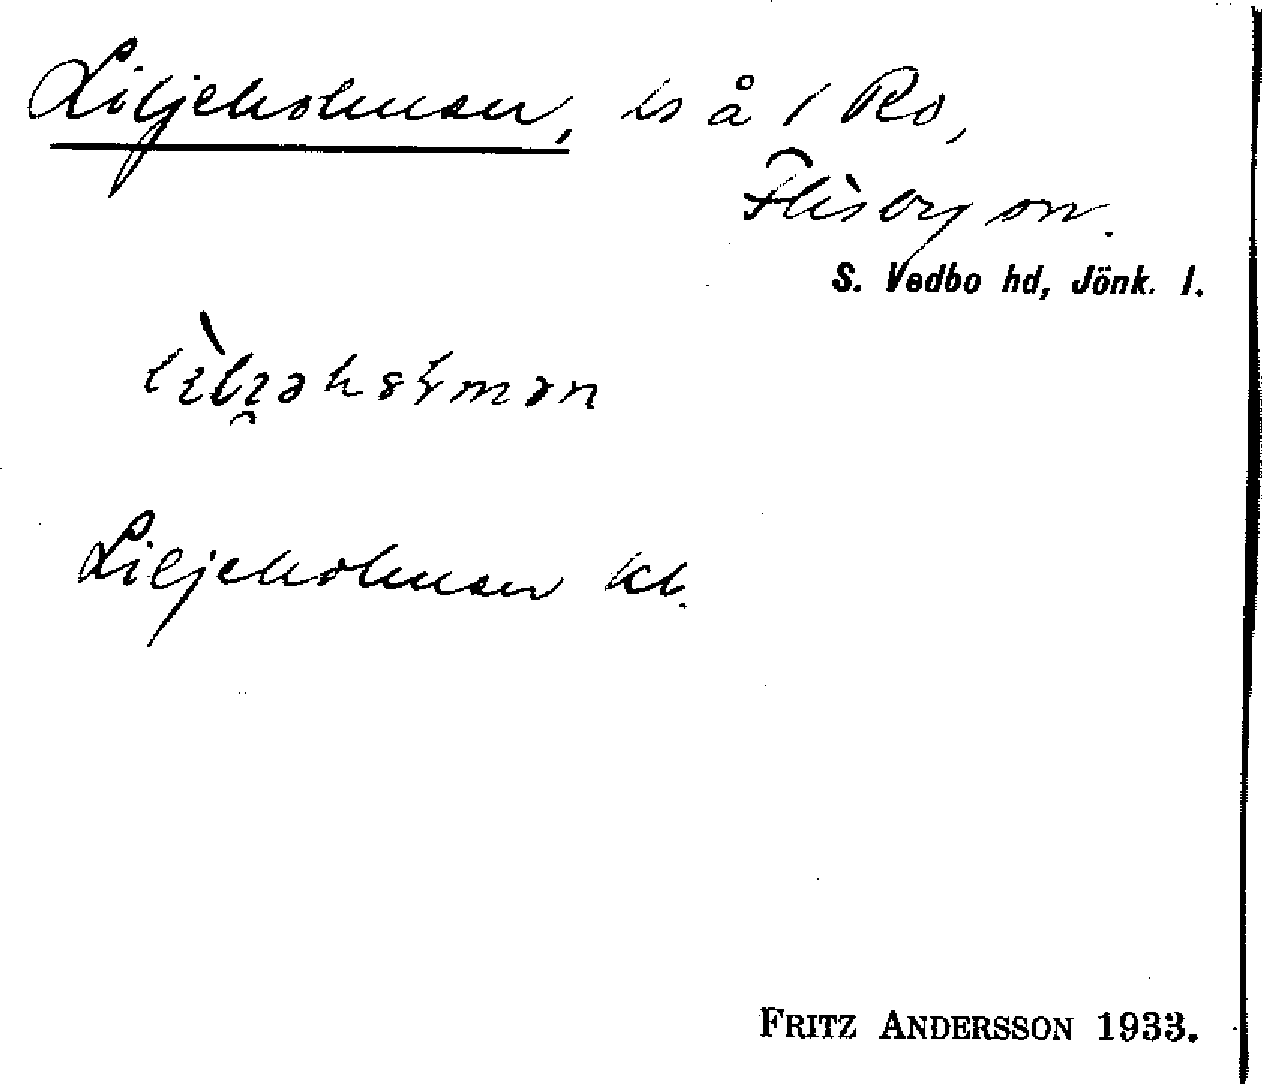 Liljeholmen, ls å 1 Ro,
Flisby sn.
S. Vedbo hd, Jönk. l.
Liljeholmen kb.
FRITZ ANDERSSON 1933.